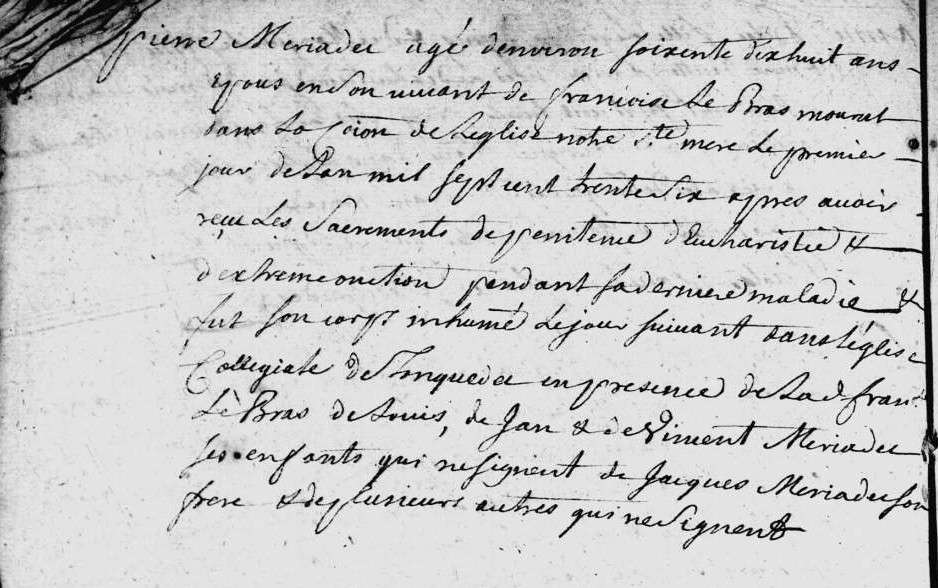 pierre Meriadec agé denviron soixente dixhuit ans
epous en son vivant de francoise Le Bras mourut
dans La Coion de Leglise notre Ste mere Le premier
jour de Lan mil sept cent trente six apres avoir
reçu Les Sacrements de penitence d'Eucharistie &
d'extremeonction pendant sa derniere maladie &
fut son corps inhumé Le jour suivant dans l'église
Collegiate de Tonquedec en presence de La de fran
Le Bras de Louis, de Jan & de Viment Meriadec
ses enfants qui ne signent de Jacques Meriadec son
frere & de plusieurs autres qui ne signent